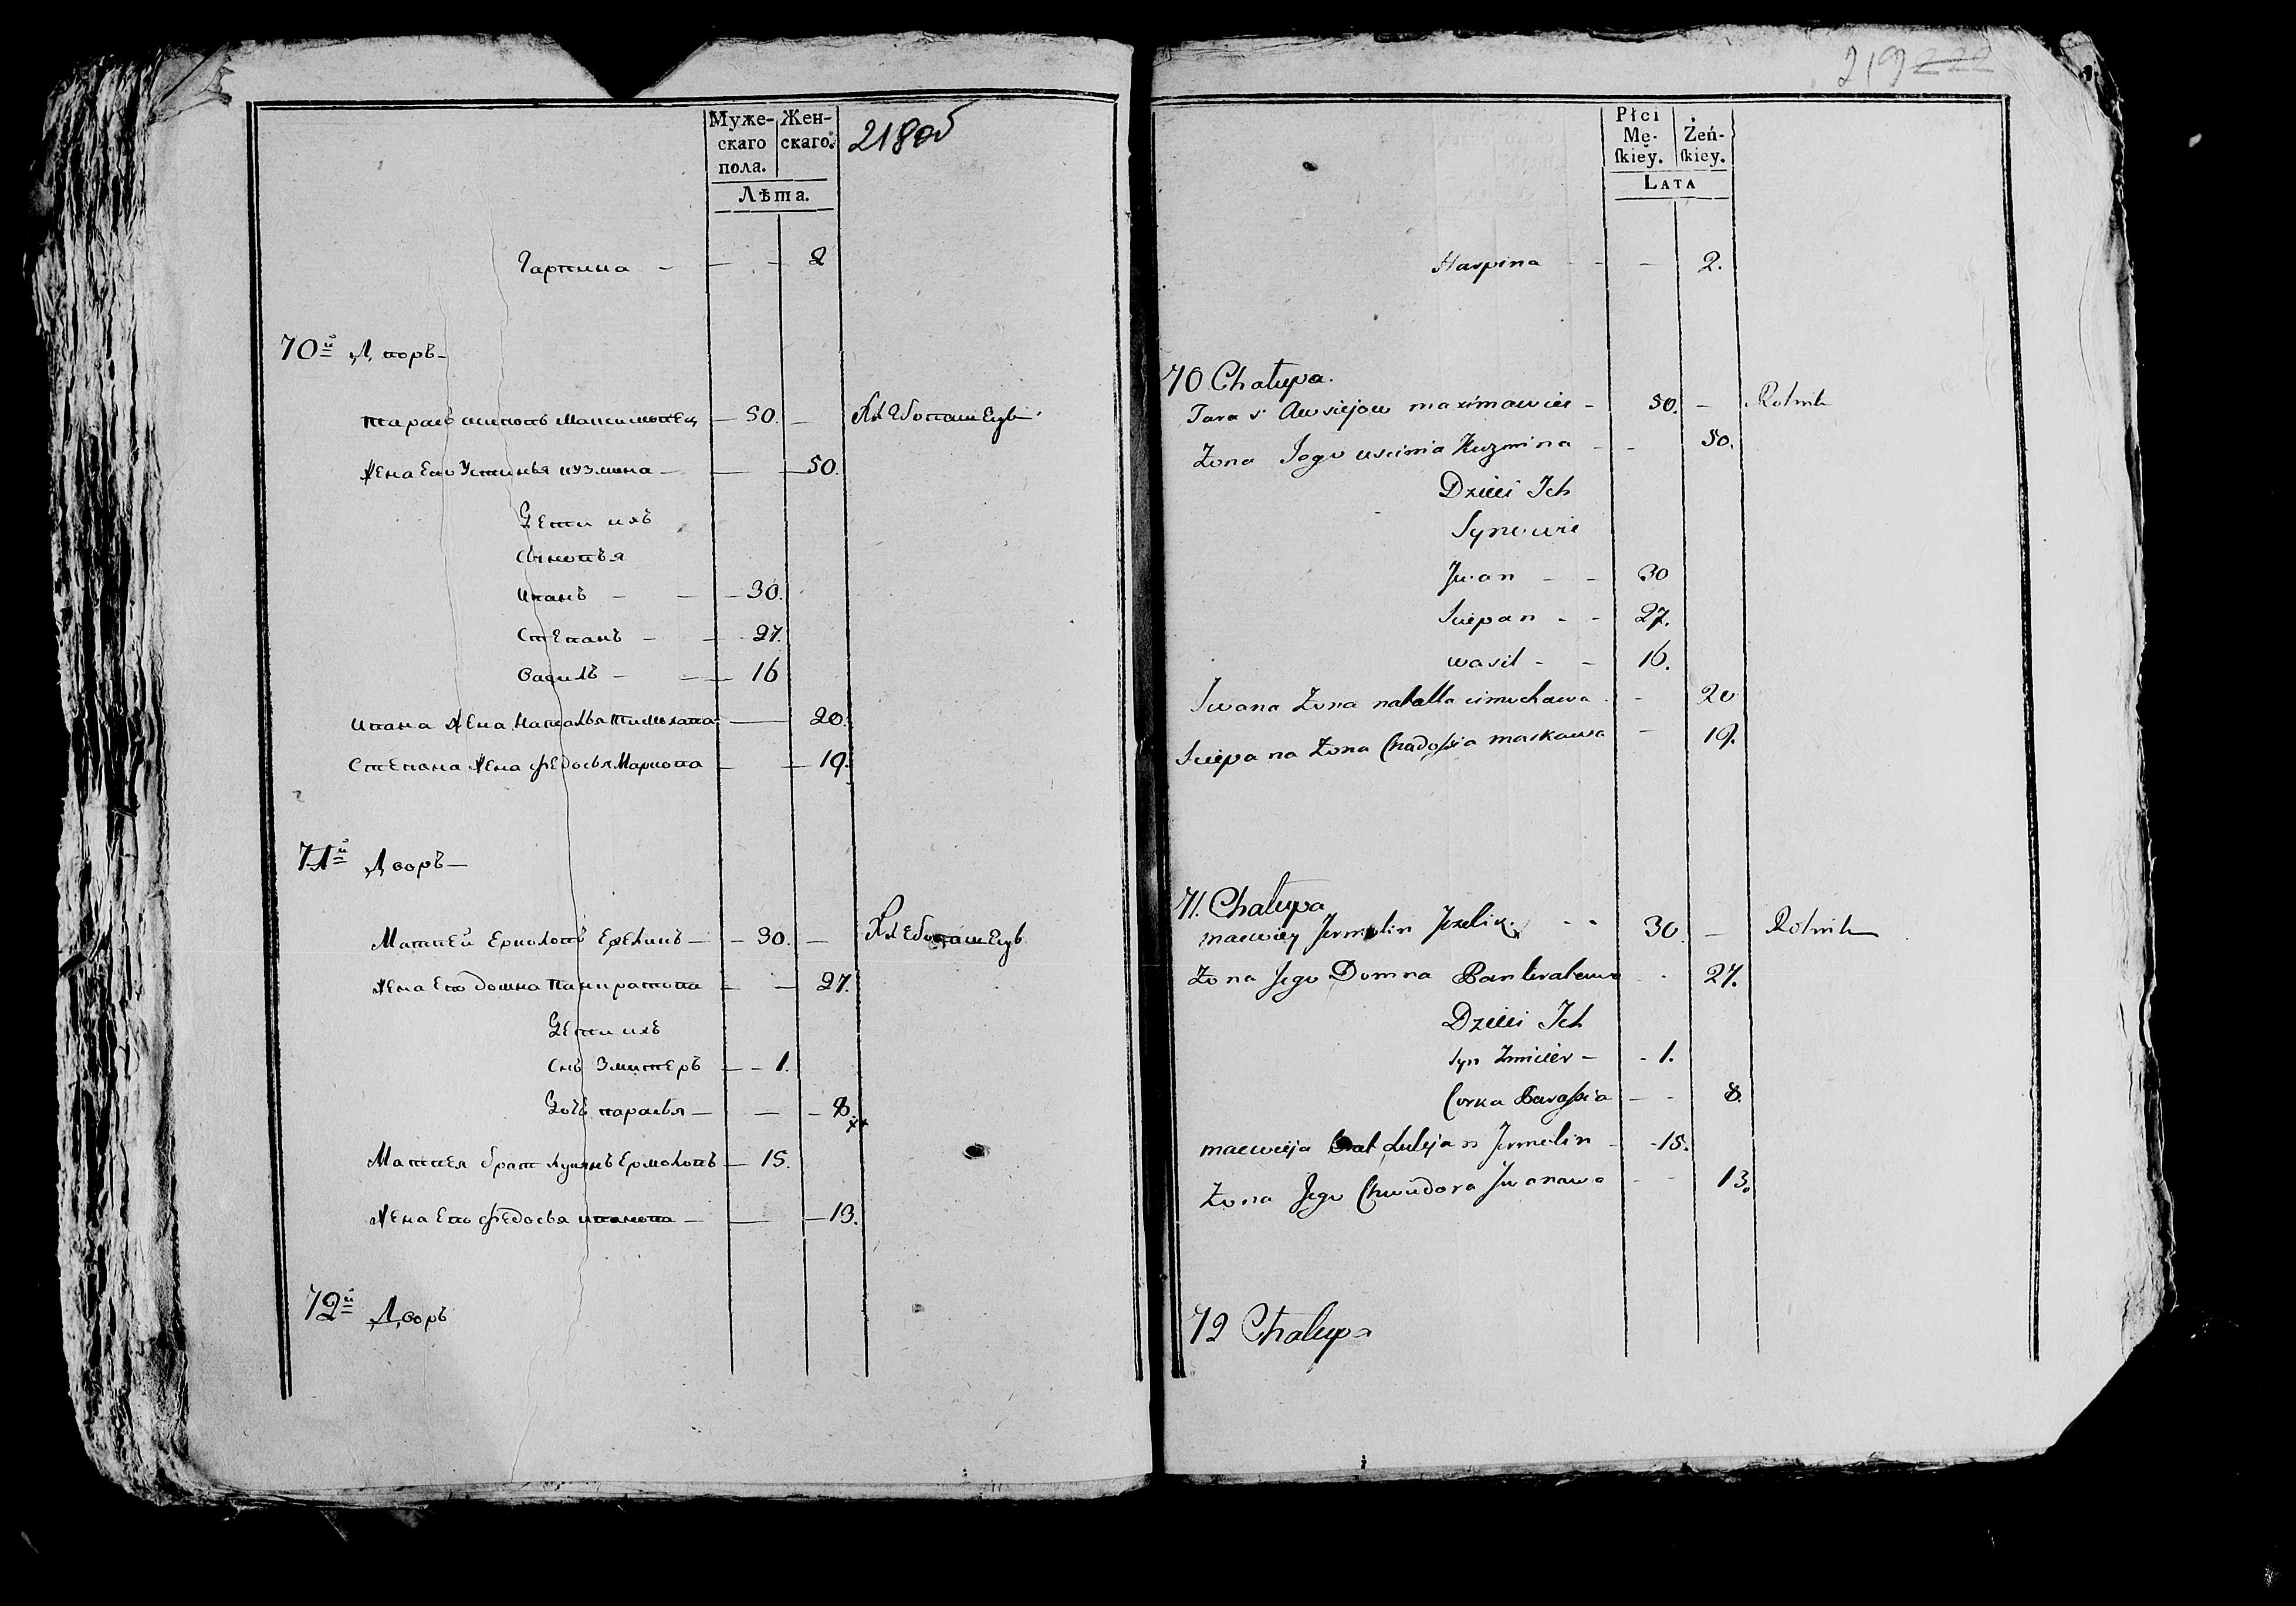 Муже-
скаго
пола.
Жен-
скаго.
218об
Лѣта.
Гарпина - - - 2
70й Дворъ-
Тарасъ Максимовец - 50. - Хлѣбопашецъ
Жена Ево Устинья кузмина - - 50.
Дети ихъ
сыновья
иванъ - - 30.
степанъ - - 27.
василъ - - 16
ивана Жена Наталья тимохова - 20.
степана Жена федосья Маркова - 19.
71й Дворъ-
Матвей Ермоловъ Ежеликъ - 30. - Хлебопашецъ
Жена Ево домна панкратова - - 27.
Дети ихъ
снъ Змитеръ - - 1.
Дочь парасья - - - 8.
Матвея брат лукянъ Ермоловъ - 15.
Жена Ево федосья иванова - - 13.
72й Дворъ
219 222
Płci
Mę-
ſkiey.
Żeń-
ſkiey.
LATA
Harpina - - - 2.
70 Chałupa.
Taras Awsiejow maximawiec - 50. - Rolnik
Żona Jego uscinia Kuzmina - - 50.
Dzieci Ich
Synowie
Jwan - - 30
Sciepan - - 27.
wasil - - 16.
Iwana Żona natalla cimochawa - 20
Sciepana Żona Chadossia markawa - 19.
71. Chałupa
maciwiey Jermolin Jezelik - - 30. - Rolnik
Żona Jego Domna Pankratawa - 27.
Dzieci Ich
syn Zmicier - - 1.
Corka Parassia - - 8.
maciwieja brat Łukjan Jermolin - 15.
Żona Jego Chwiedora Jwanawa - - 13.
72 Chałupa